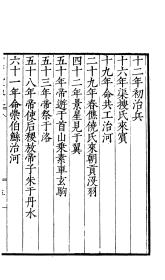 十二年初治兵
十六年渠搜氏來賓
十九年命共工治河
二十九年春僬僥氏來朝貢没羽
四十二年景星見于翼
五十年帝遊于首山乗素車玄駒
五十三年帝祭于洛
五十八年帝使后稷放帝子朱于丹水
六十一年命崇伯鯀治河